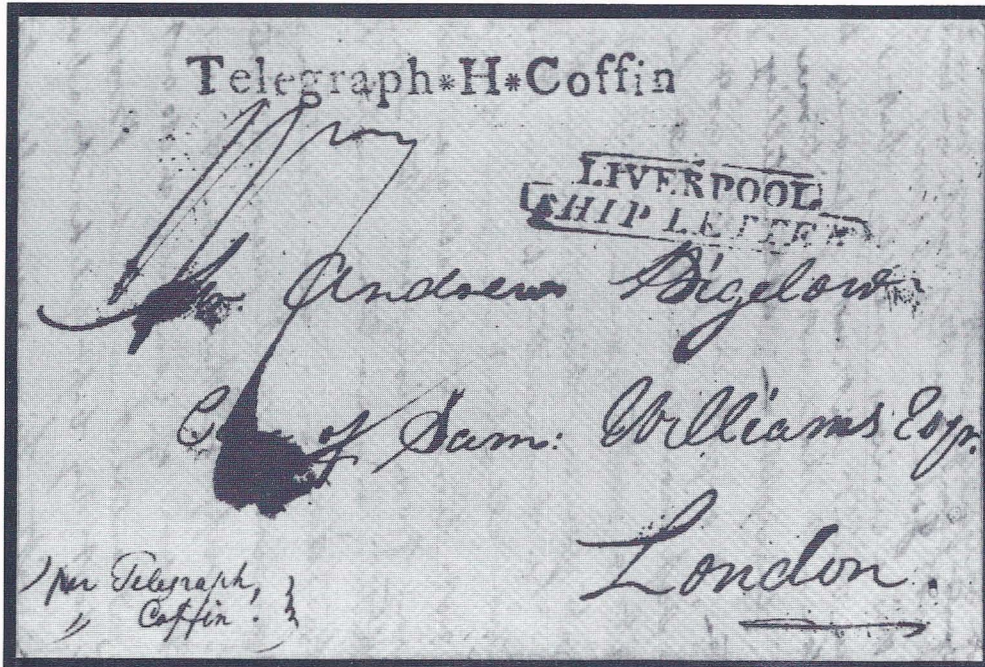 Telegraph*H*Coffin
LIVERPOOL
SHIP LETTER
Andrew Bigelow
of Sam: Williams Esqr.
London.
per Telegraph,
" Coffin.